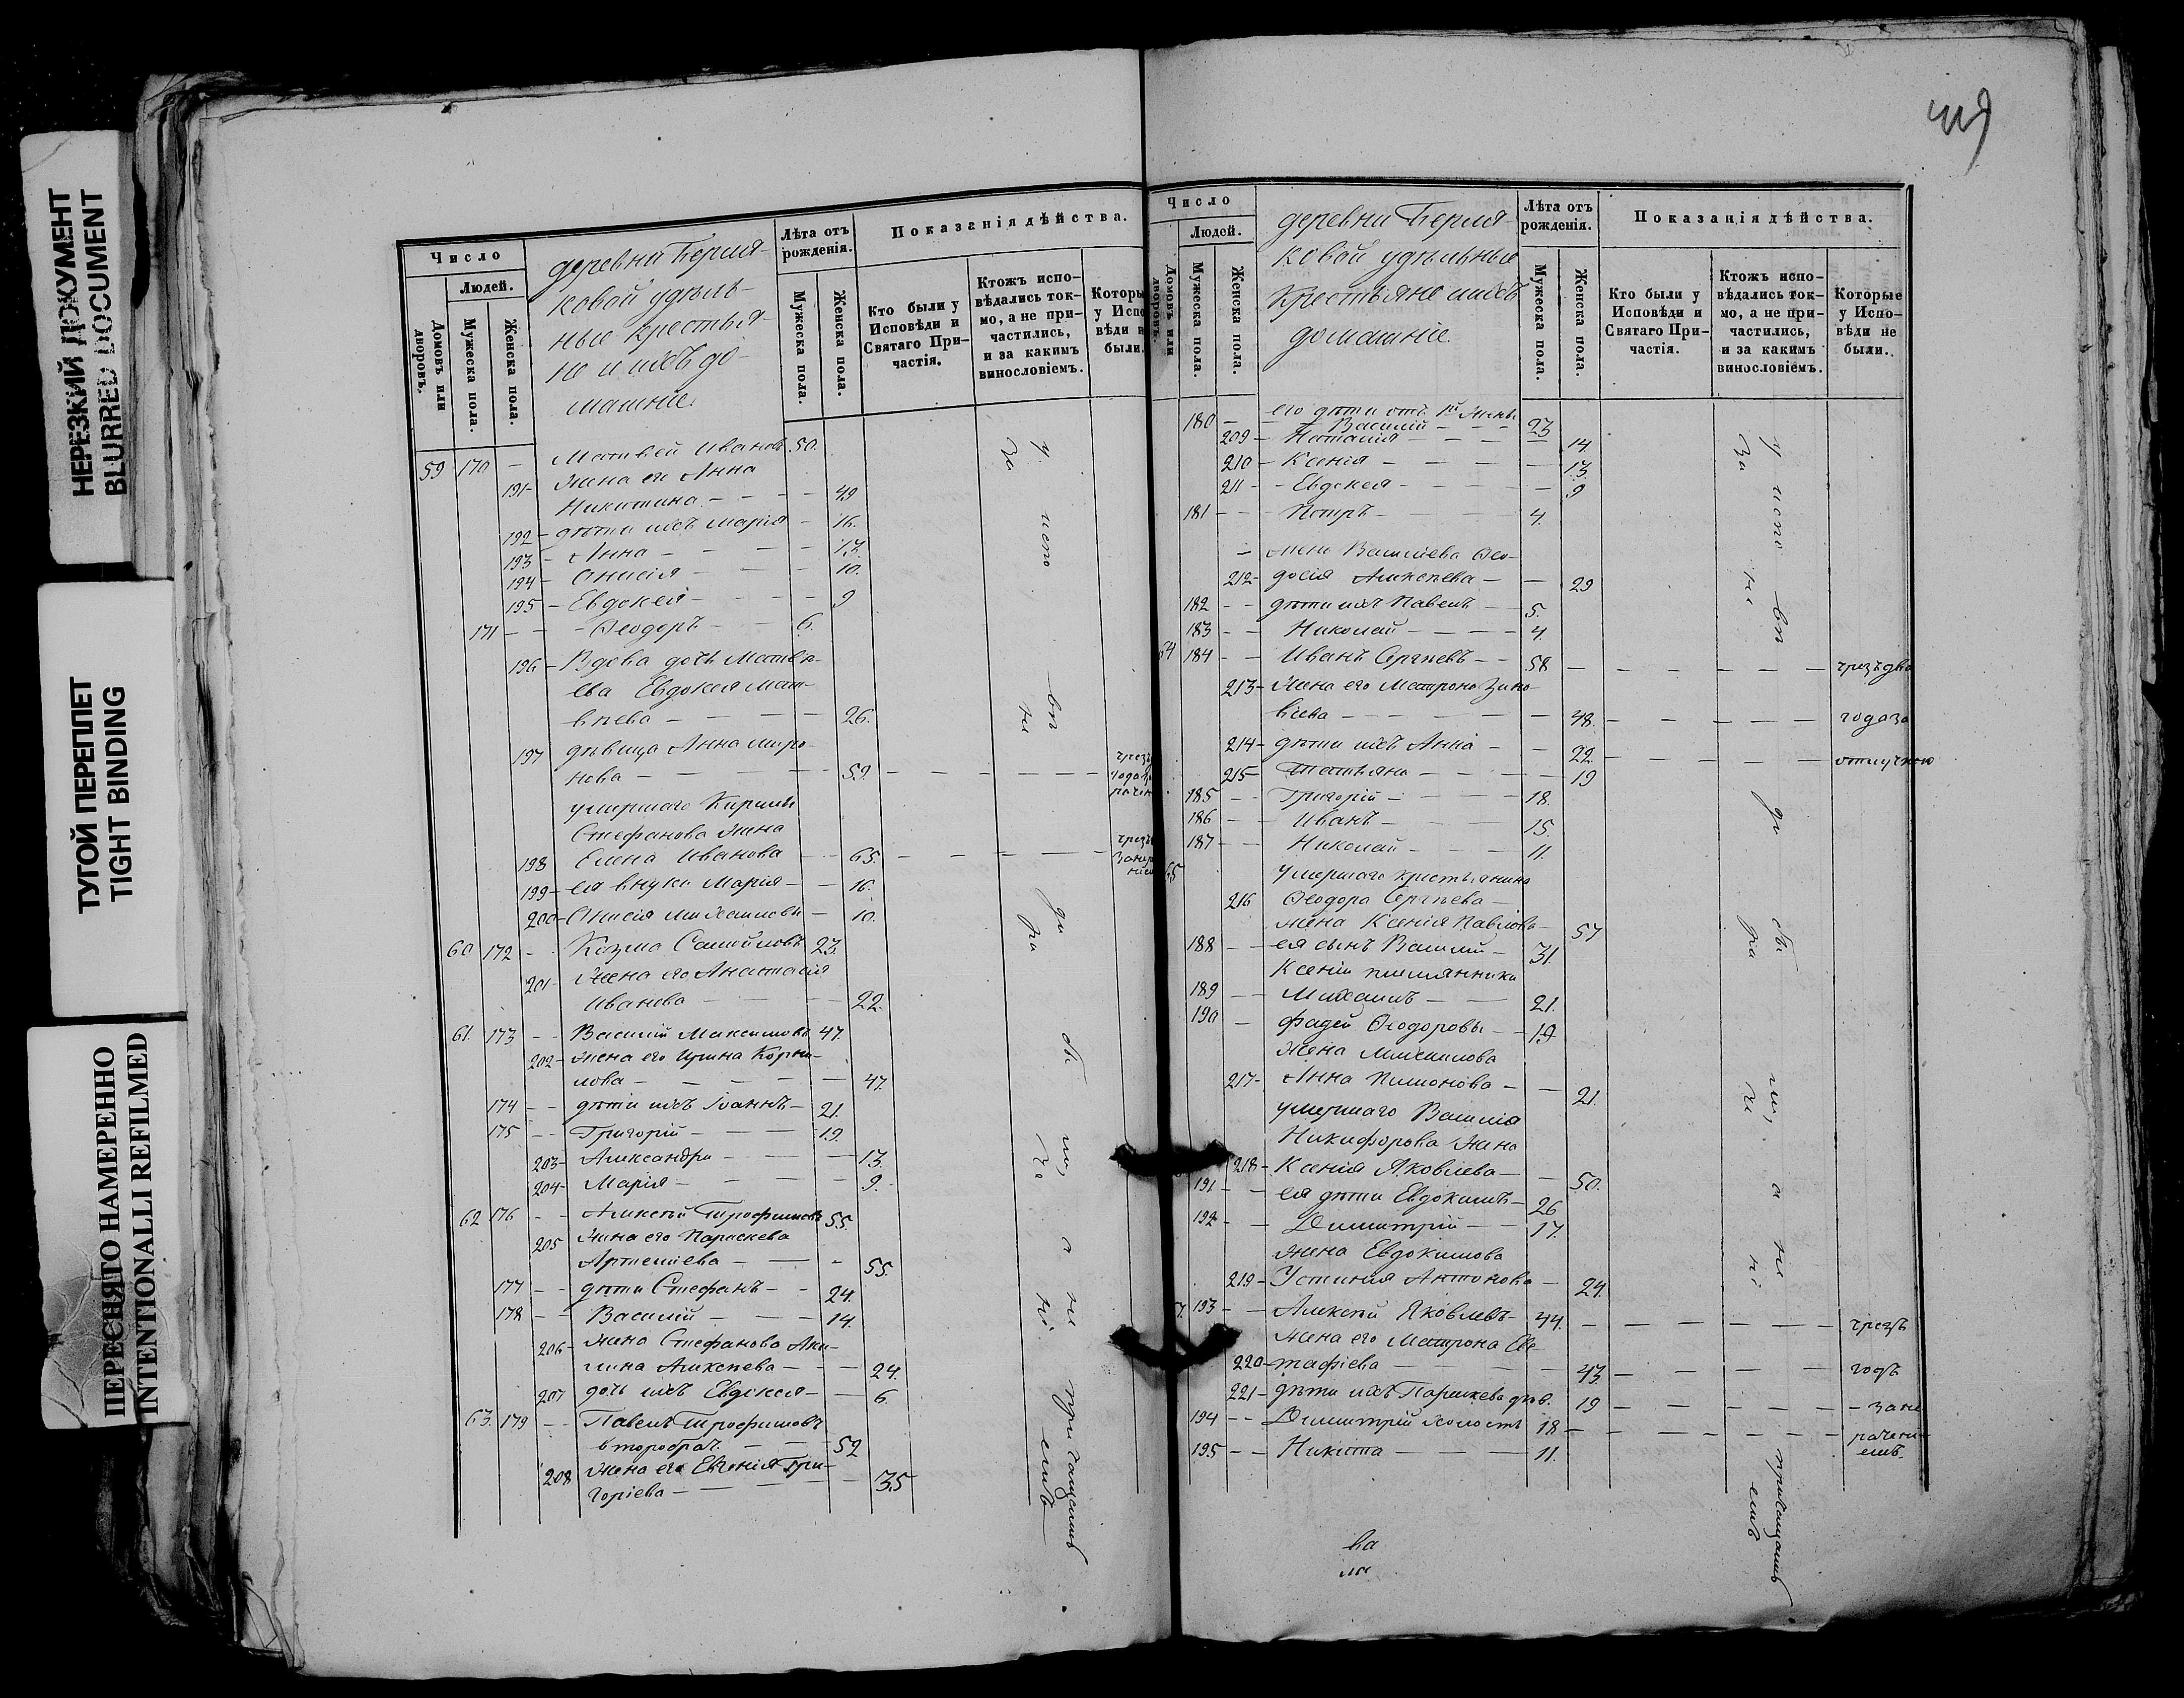 НЕРЕЗКИЙ ДОКУМЕНТ
BLURRED DOCUMENT
ТУГОЙ ПЕРЕПЛЕТ
TIGHT BINDING
ПЕРЕСНЯТО НАМЕРЕННО
INTENTIONALLI REFILMED
Число
Людей.
Домовъ или дворовъ.
Мужеска пола.
Женска пола.
деревни Берля-
ковой удѣль-
ные крестья-
не и ихъ до-
машніе.
Лѣта отъ рожденія.
Мужеска пола.
Женска пола.
Показанія дѣйства.
Кто были у Исповѣди и Святаго Причастія.
Ктожъ исповѣдались токмо, а не причастились, и за какимъ винословіемъ.
Которы
у Испо
вѣди н
были.
59 170 – Матвей Ивановъ 50.
191 – Жена его Анна
Никитина – – – 49
192 – дѣти ихъ Марія – 16.
193 – Анна – – – 13.
194 – Анисія – – – 10.
195 – Евдокея – – – 9
171 – – Ѳеодоръ – – 6.
196 – Вдова дочь Матвѣ-
ева Евдокея Мат-
вѣева – – – 26.
197 дѣвица Анна Миро-
нова – – – 59. – – – – –
умершаго Кирилы
Стефанова жена
198 Елена Иванова – – 65. – – – –
199 – ея внуки Марія – – 16.
200 – Анисія Михаиловы – 10.
60 172 – Козма Самойловъ 23.
201 – Жена его Анастасія
Иванова – – – 22.
61. 173 – – Василій Максимовъ 47.
202 – жена его Ирина Корни-
лова – – – – 47.
174 – – дѣти ихъ Іоаннъ – 21.
175 – – Григорій – – – 19.
203 – Александра – – – 13.
204 – Марія – – – 9.
62 176 – – Алексѣй Трофимовъ 55
205 Жена его Параскева
Артемиева – – – 55.
177 – – дѣти Стефанъ – – 24.
178 – – Василій – – – 14.
206 – жена Стефанова Аку-
лина Алексѣева – – – 24.
207 дочь ихъ Евдокея – – 6.
63. 179 – – Павелъ Трофимовъ
второбрач. – – – 52
208 жена его Евгенія Гри-
горіева – – – – 35
у испо вѣ ди бы ли, а не причащались
за не ра че ні емъ
Число
Людей.
Домовъ или дворовъ.
Мужеска пола.
Женска пола.
деревни Берля-
ковой удѣльные
крестьяне ихъ
домашніе.
Лѣта отъ рожденія.
Мужеска пола.
Женска пола.
Показанія дѣйства.
Кто были у Исповѣди и Святаго Причастія.
Ктожъ исповѣдались токмо, а не причастились, и за какимъ винословіемъ.
Которые у Исповѣди не были.
его дѣти отъ 1й жены
180 – – Василій – – – 23
209 – Наталія – – – – 14.
210 – Ксенія – – – – 13.
211 – – Евдокея – – – – 9
181 – – Петръ – – – 4.
– жена Василіева Ѳео-
212 – досія Алексѣева – – 29
182 – – дѣти ихъ Павелъ – 5.
183 – – Николай – – – – 4.
64 184 – – Иванъ Сергѣевъ – – 58 – – – – – – чрезъ два
213 – Жена его Матрона Зино-
віева – – – – – 48. – – – – – года за
214 – дѣти ихъ Анна – – 22. – – – – – отлучкою
215 – Татьяна – – – – 19
185 – – Григорій – – – 18.
186 – – Иванъ – – – 15.
187 – – Николай – – – 11.
65 умершаго крестьянина
216 Ѳеодора Сергѣева –
жена Ксенія Павлова – 57
188 – – ея сынъ Василій – 31.
Ксеніи племянники
189 – – Михаилъ – – 21.
190 – Фадей Ѳеодоровы – – 19
Жена Михаилова
217 – Анна Пимонова – – 21.
умершаго Василія
Никифорова жена
218 – Ксенія Яковлева – – 50.
191 – – ея дѣти Евдокимъ – 26
192 – – Димитрій – – 17.
жена Евдокимова
219 – Устинія Антонова – 24.
193 – – Алексѣй Яковлевъ – 44. – – – – – – чрезъ
Жена его Матрона Ев-
220 – тафіева – – – – 43. – – – – годъ
221 – дѣти ихъ Параскева дѣв. 19 – – – – – – за не
194 – – Димитрій холостъ 18 – – – – – – рачені-
195 – – Никита – – – 11. емъ.
у испо вѣ ди бы ли, а не причащались
за не ра че ні емъ